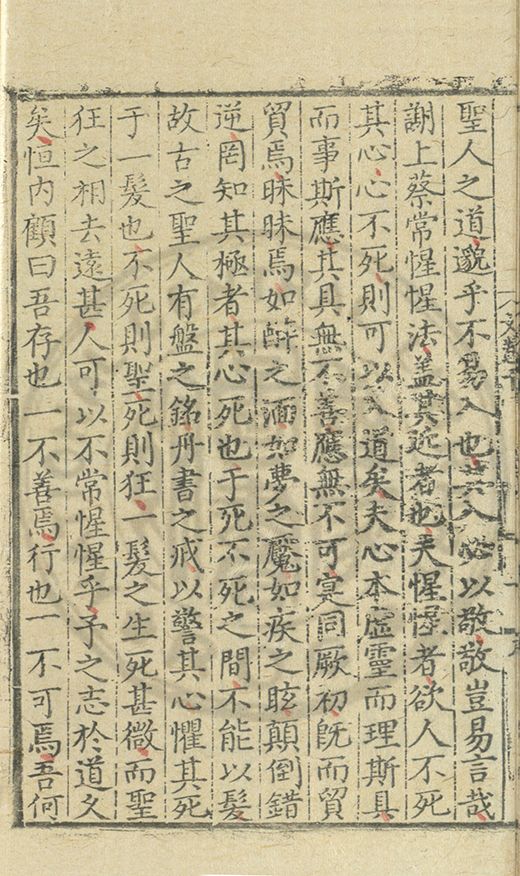 聖人之道邈乎不易入也其入必以敬敬豈易言哉
謝上蔡常惺惺法盖其近者也夫惺惺者欲人不死
其心心不死則可以入道矣夫心本虛靈而理斯具
而事斯應其具無不善應無不可寔同厥初旣而貿
貿焉昧昧焉如醉之湎如夢之魘如疾之眩顛倒錯
逆罔知其極者其心死也于死不死之間不能以髮
故古之聖人有盤之銘丹書之戒以警其心懼其死
于一髮也不死則聖死則狂一髮之生死甚微而聖
狂之相去遠甚人可以不常惺惺乎予之志於道久
矣恒内顧曰吾存也一不善焉行也一不可焉吾何